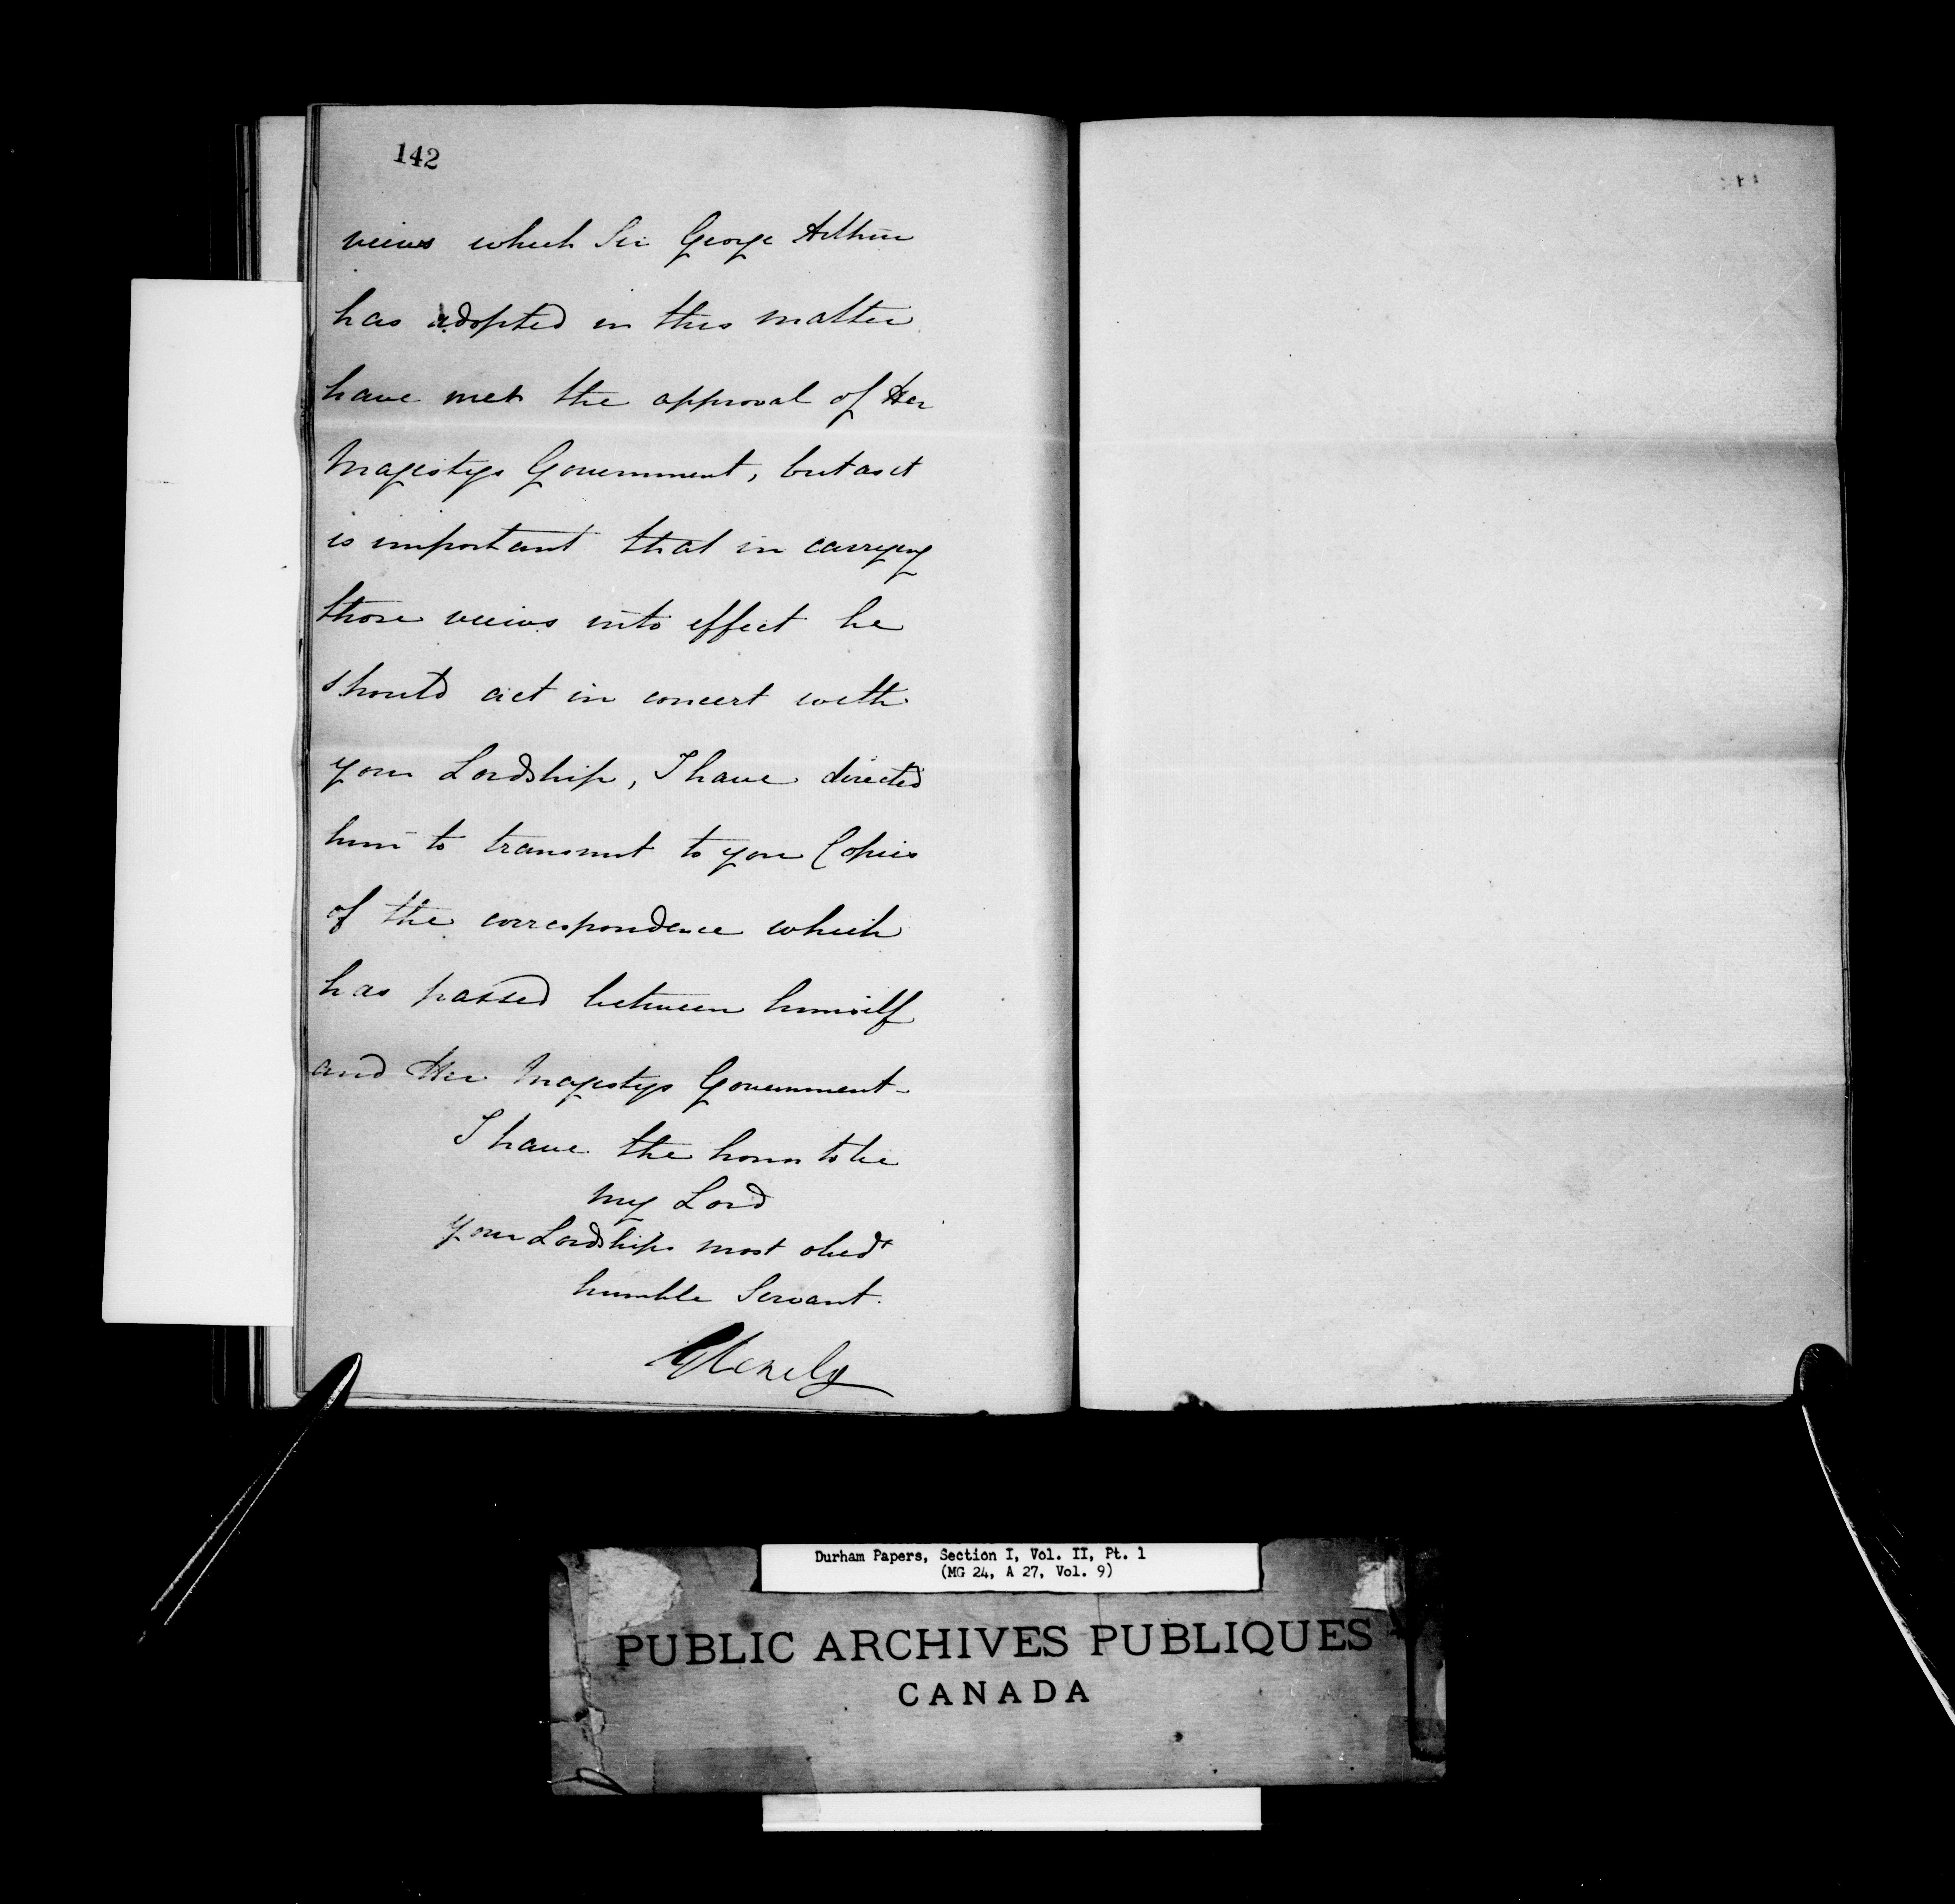 142
views which Sir George Arthur
has adopted in this matter
have met the approval of Her
Majestys Government, but as it
is important that in carrying
those views into effect he
should act in concert with
your Lordship, I have directed
him to transmit to you Copies
of the correspondence which
has passed between himself
and Her Majestys Government-
I have the honor to be
My Lord
Your Lordships most obedt
humble Servant.
Glenelg
Durham Papers, Section I, Vol. II, Pt. 1
(MG 24, A 27, Vol. 9)
PUBLIC ARCHIVES PUBLIQUES
CANADA